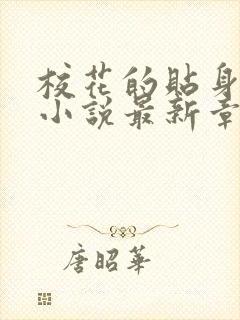 校花的貼身
小說最新章
唐昭華